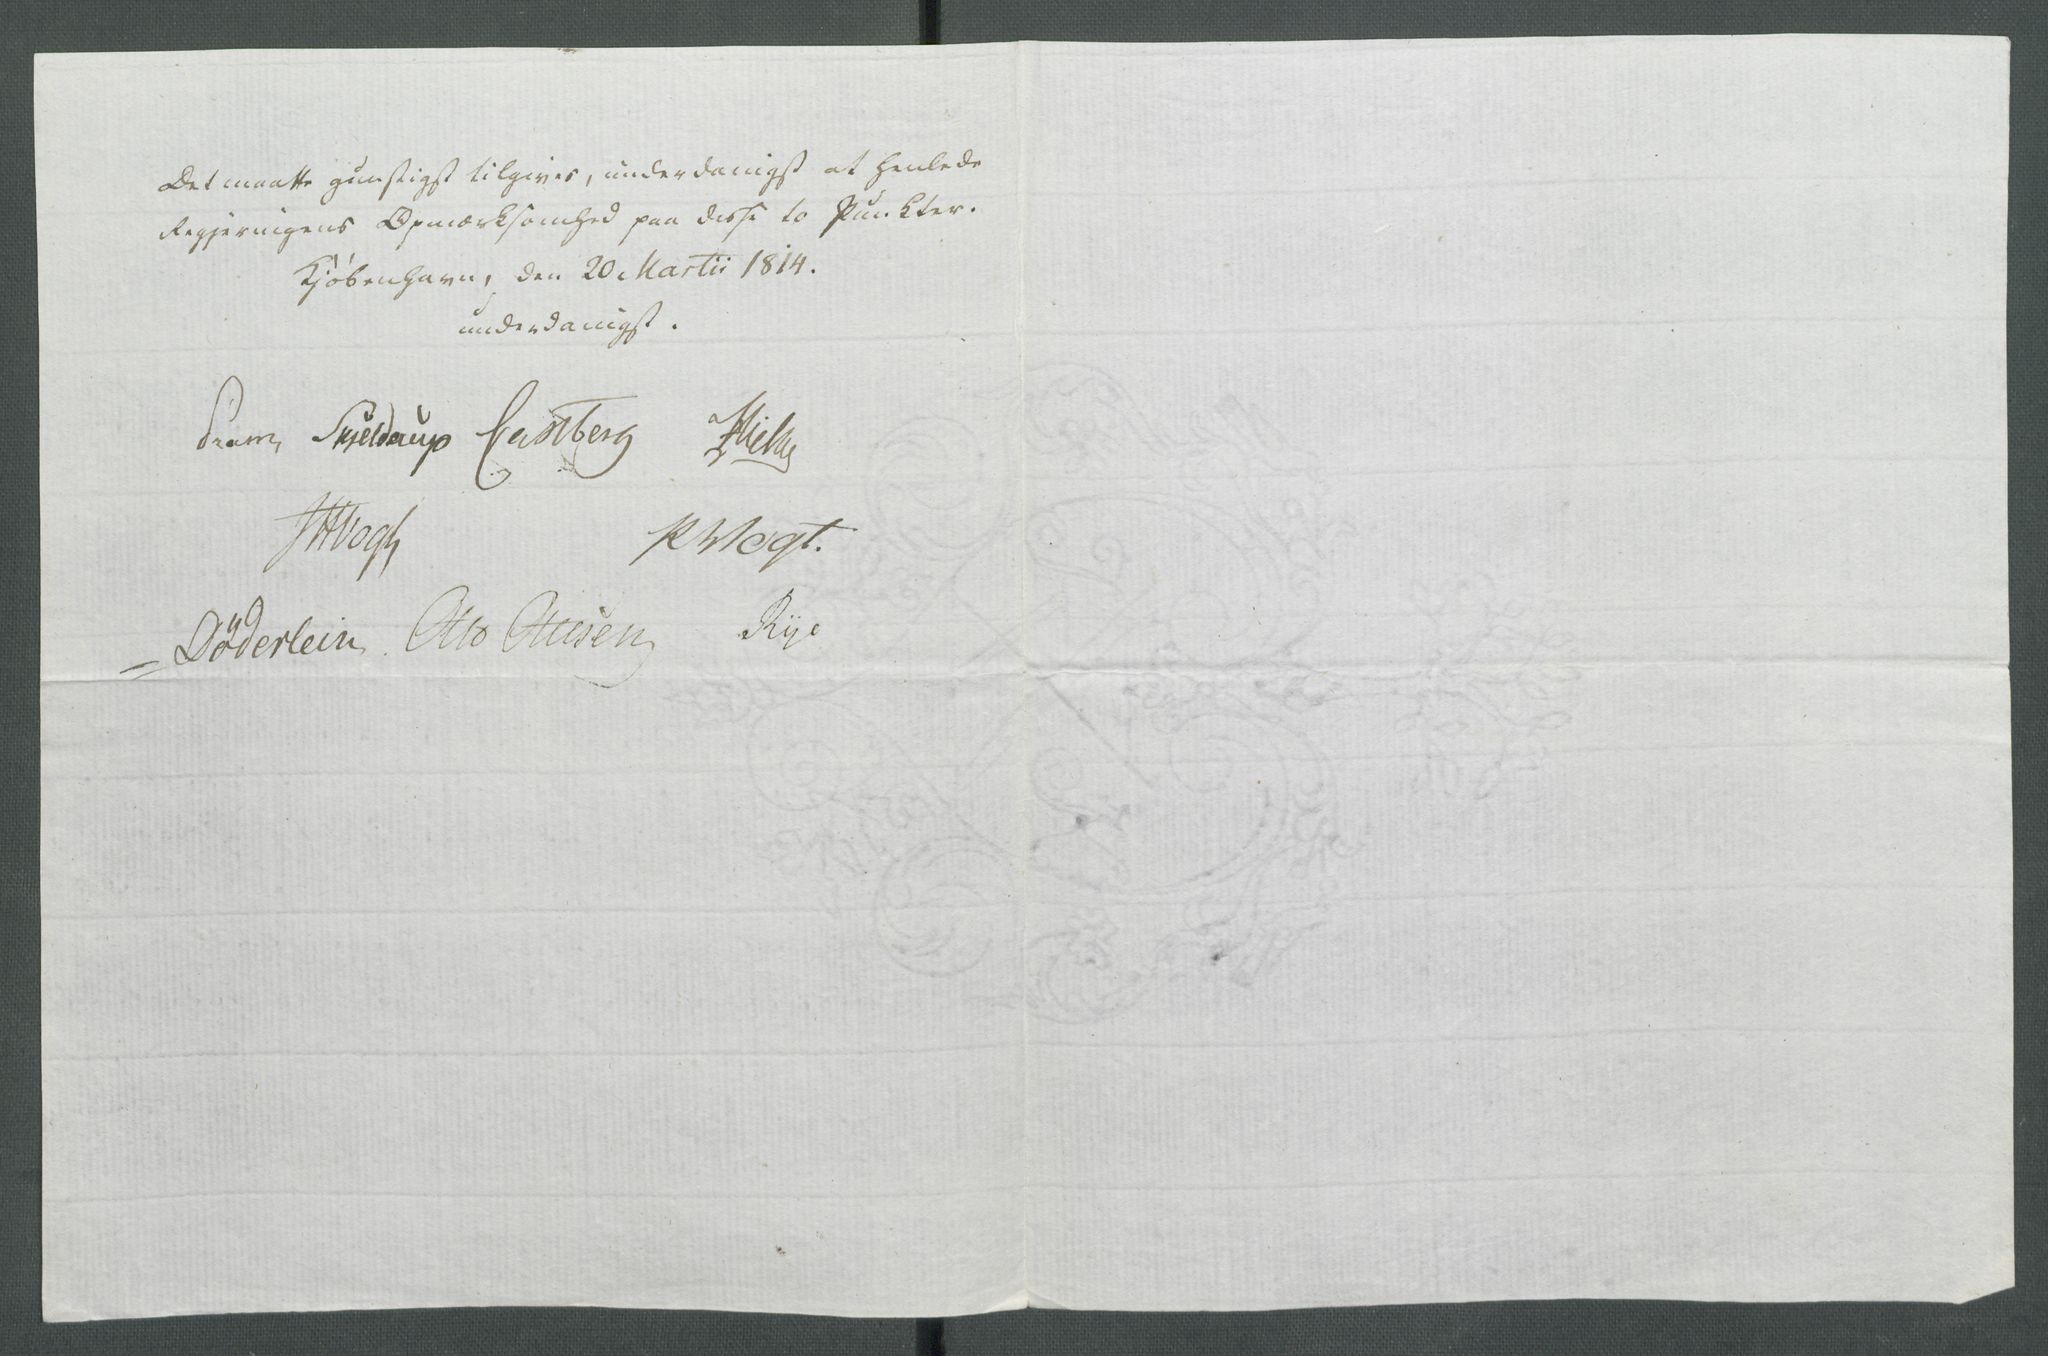 Det maatte gunstigst tilgives, underdanigst at henlede
Regjeringens Opmærksomhed paa disse to Punkter.
Kjöbenhavn, den 20 Martii 1814.
underdanigst.
Pram Skjelderup Castberg
JHVogt RVogt.
Döderlein. Otto Ottesen Rye